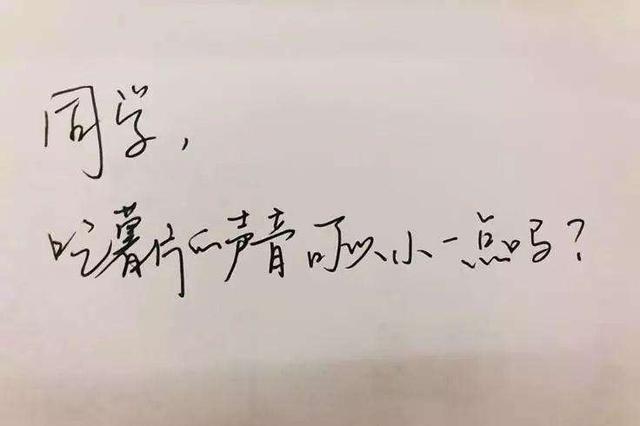 同学,
吃薯片的声音可以小一点吗?